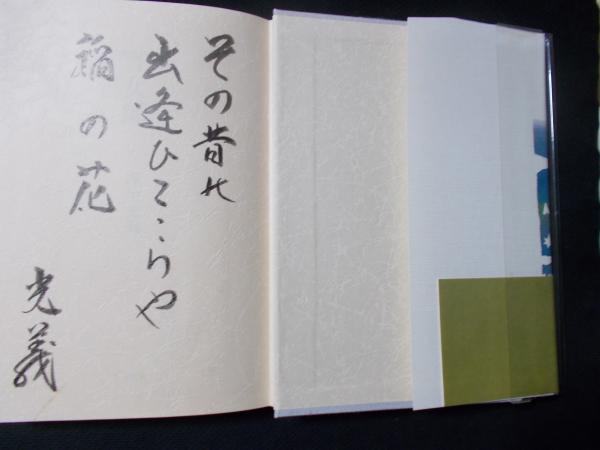 その昔の
出逢ひこゝらや
稲の花
光義